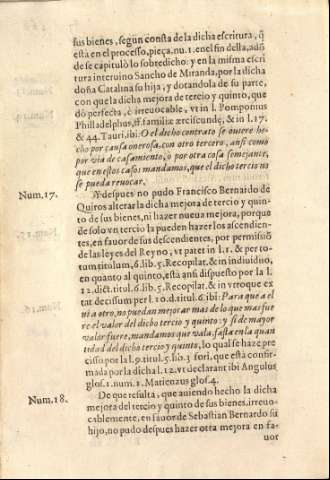 sus bienes, segun consta de la dicha escritura, q̃
està en el processo, pieça. nu. 1. en el fin della, adõ
de se capitulò lo sobredicho: y en la misma escri
tura interuino Sancho de Miranda, por la dicha
doña Catalina su hija, y dotandola de su parte,
con que la dicha mejora de tercio y quinto, que
dò perfecta, è irreuocable, vt in l. Pomponius
Philladelphus, ff. familiæ ærciscundę, & in l. 17.
& 44. Tauri, ibi: O el dicho contrato se ouiere he-
cho por causa onerosa, con otro tercero, ansi como
por via de casamiento, ò por otra cosa semejante,
que en estos casos mandamos, que el dicho tercio no
se pueda reuocar.
Num. 17. Y despues no pudo Francisco Bernardo de
Quiros alterar la dicha mejora de tercio y quin-
to de sus bienes, ni hazer nueua mejora, porque
de solo vn tercio la pueden hazer los ascendien-
tes, en fauor de sus descendientes, por permissiõ
de las leyes del Reyno, vt patet in l. 1. & per to-
tum titulum, 6. lib. 5. Recopilat. & in indiuiduo,
en quanto al quinto, està ansi dispuesto por la l.
12. dict. titul. 6. lib. 5. Recopilat. & in vtroque ex
tat decissum per l. 10. d. titul. 6. ibi: Para que a el
vn a otro, no puedan mejorar mas de lo que mas fue
re el valor del dicho tercio y quinto: y si de mayor
valor fuere, mandamos que vala, fasta en la quan
tidad del dicho tercio y quinto, lo qual se haze pre
cisso por la l. 9. titul. 5. lib. 3. fori, que està confir-
mada por la dicha l. 12. vt declarant ibi Angulus
glos. 1. num. 1. Matienzus glos. 4.
Num. 18. De que resulta, que auiendo hecho la dicha
mejora del tercio y quinto de sus bienes, irreuo-
cablemente, en fauor de Sebastian Bernardo su
hijo, no pudo despues hazer otra mejora en fa-
uor